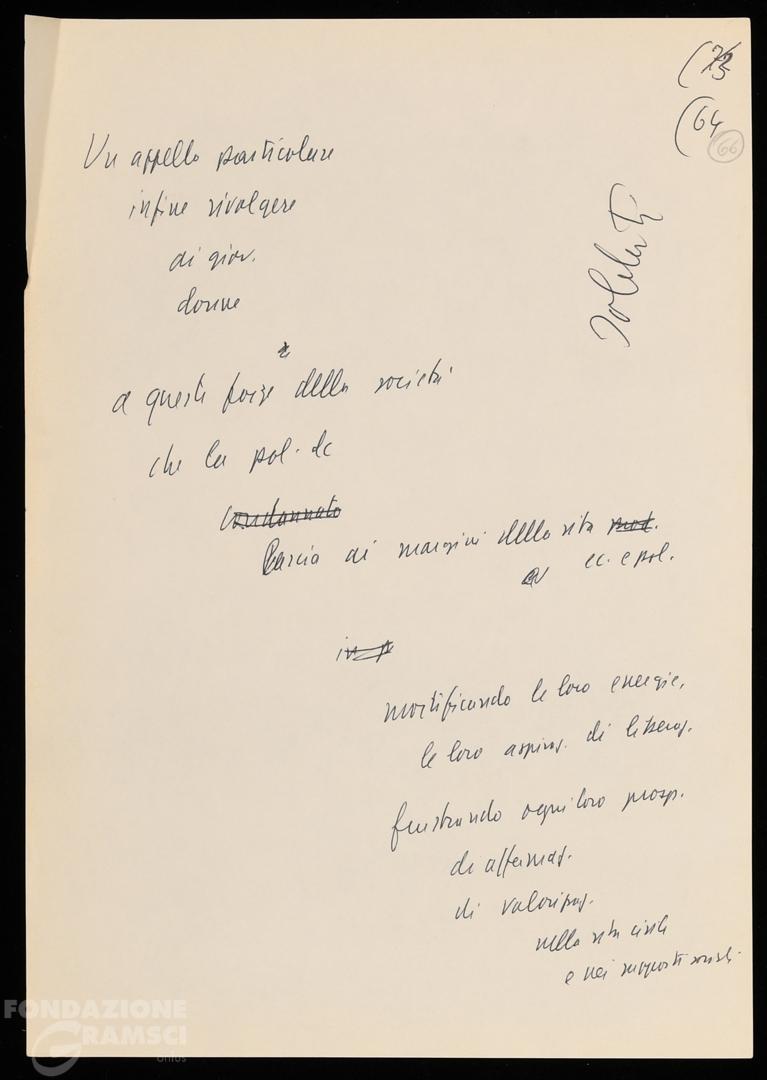 (64
66
Un appello particolare
infine rivolgere
ai giov.
donne
a queste forze della società
che la pol. dc
condannato
lascia ai margini della vita prod.
ec. e pol.
mortificando le loro energie,
le loro aspiraz. di liberaz.
frustrando ogni loro prosp.
di affermaz.
di valorizzaz.
nella vita civile
e nei rapporti sociali.
FONDAZIONE
GRAMSCI
onlus